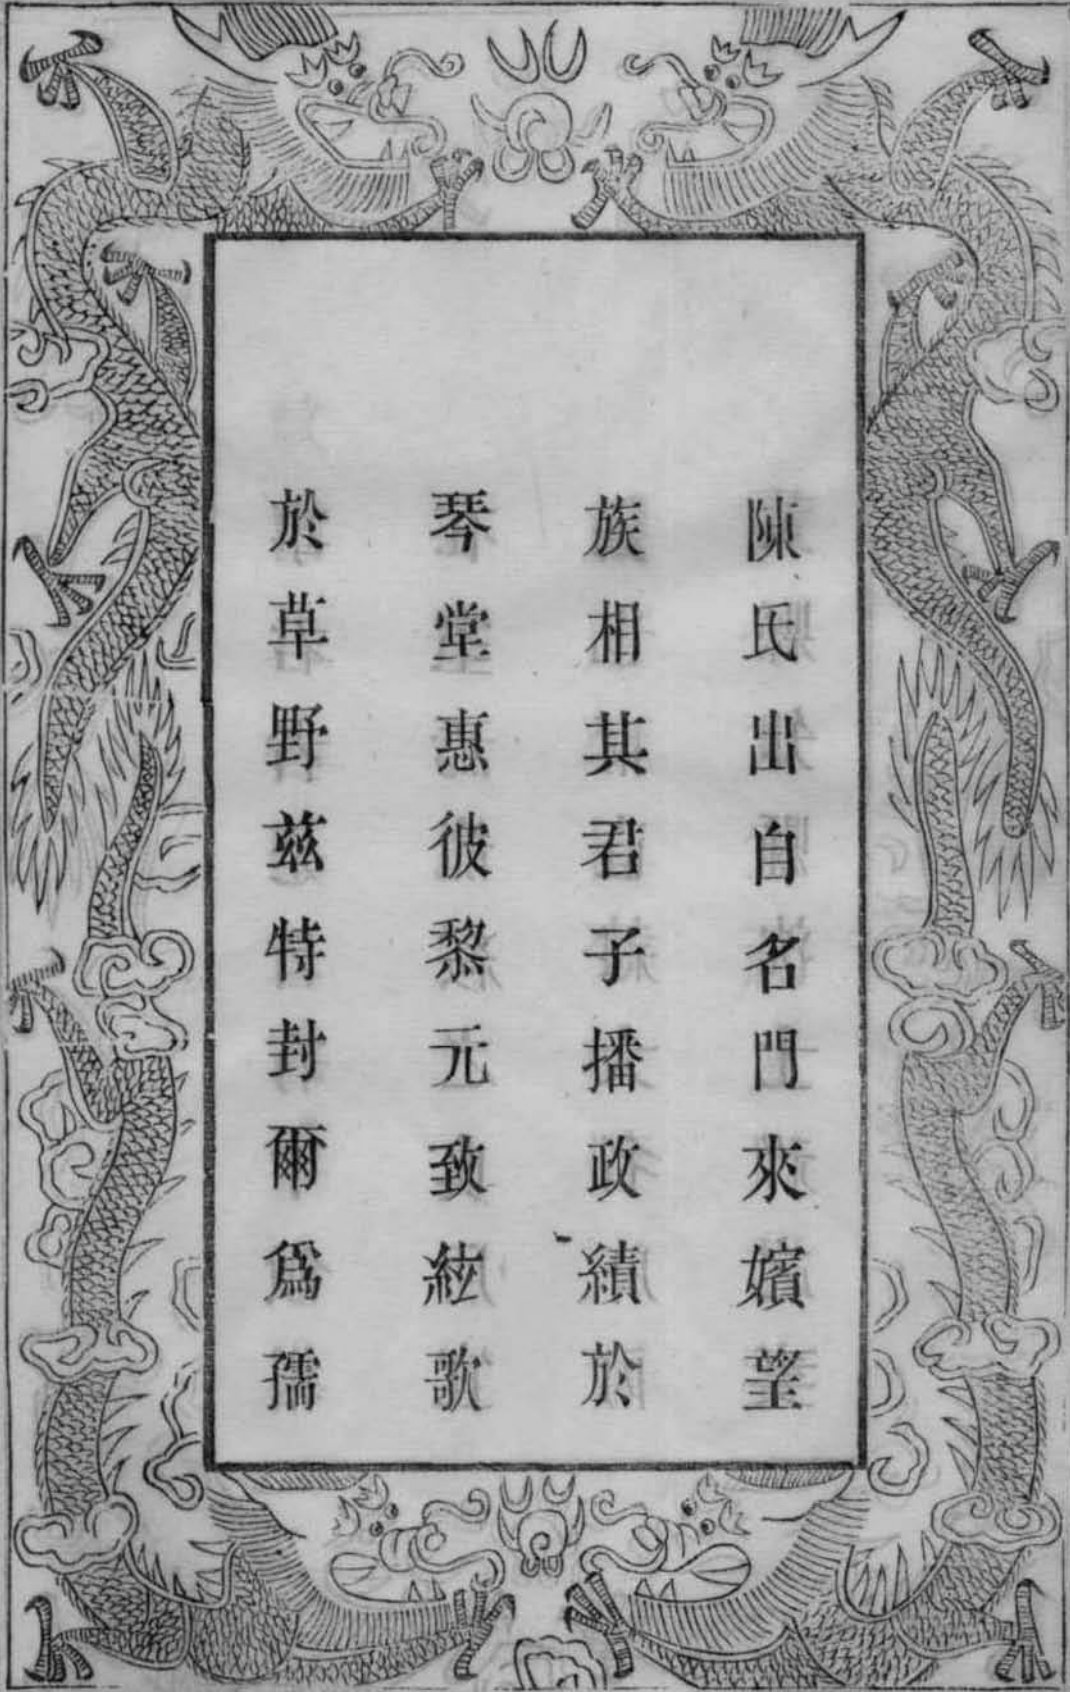 陳氏出自名門來嬪望
族相其君子播政績於
琴堂惠彼黎元致絃歌
於草野茲特封爾爲孺